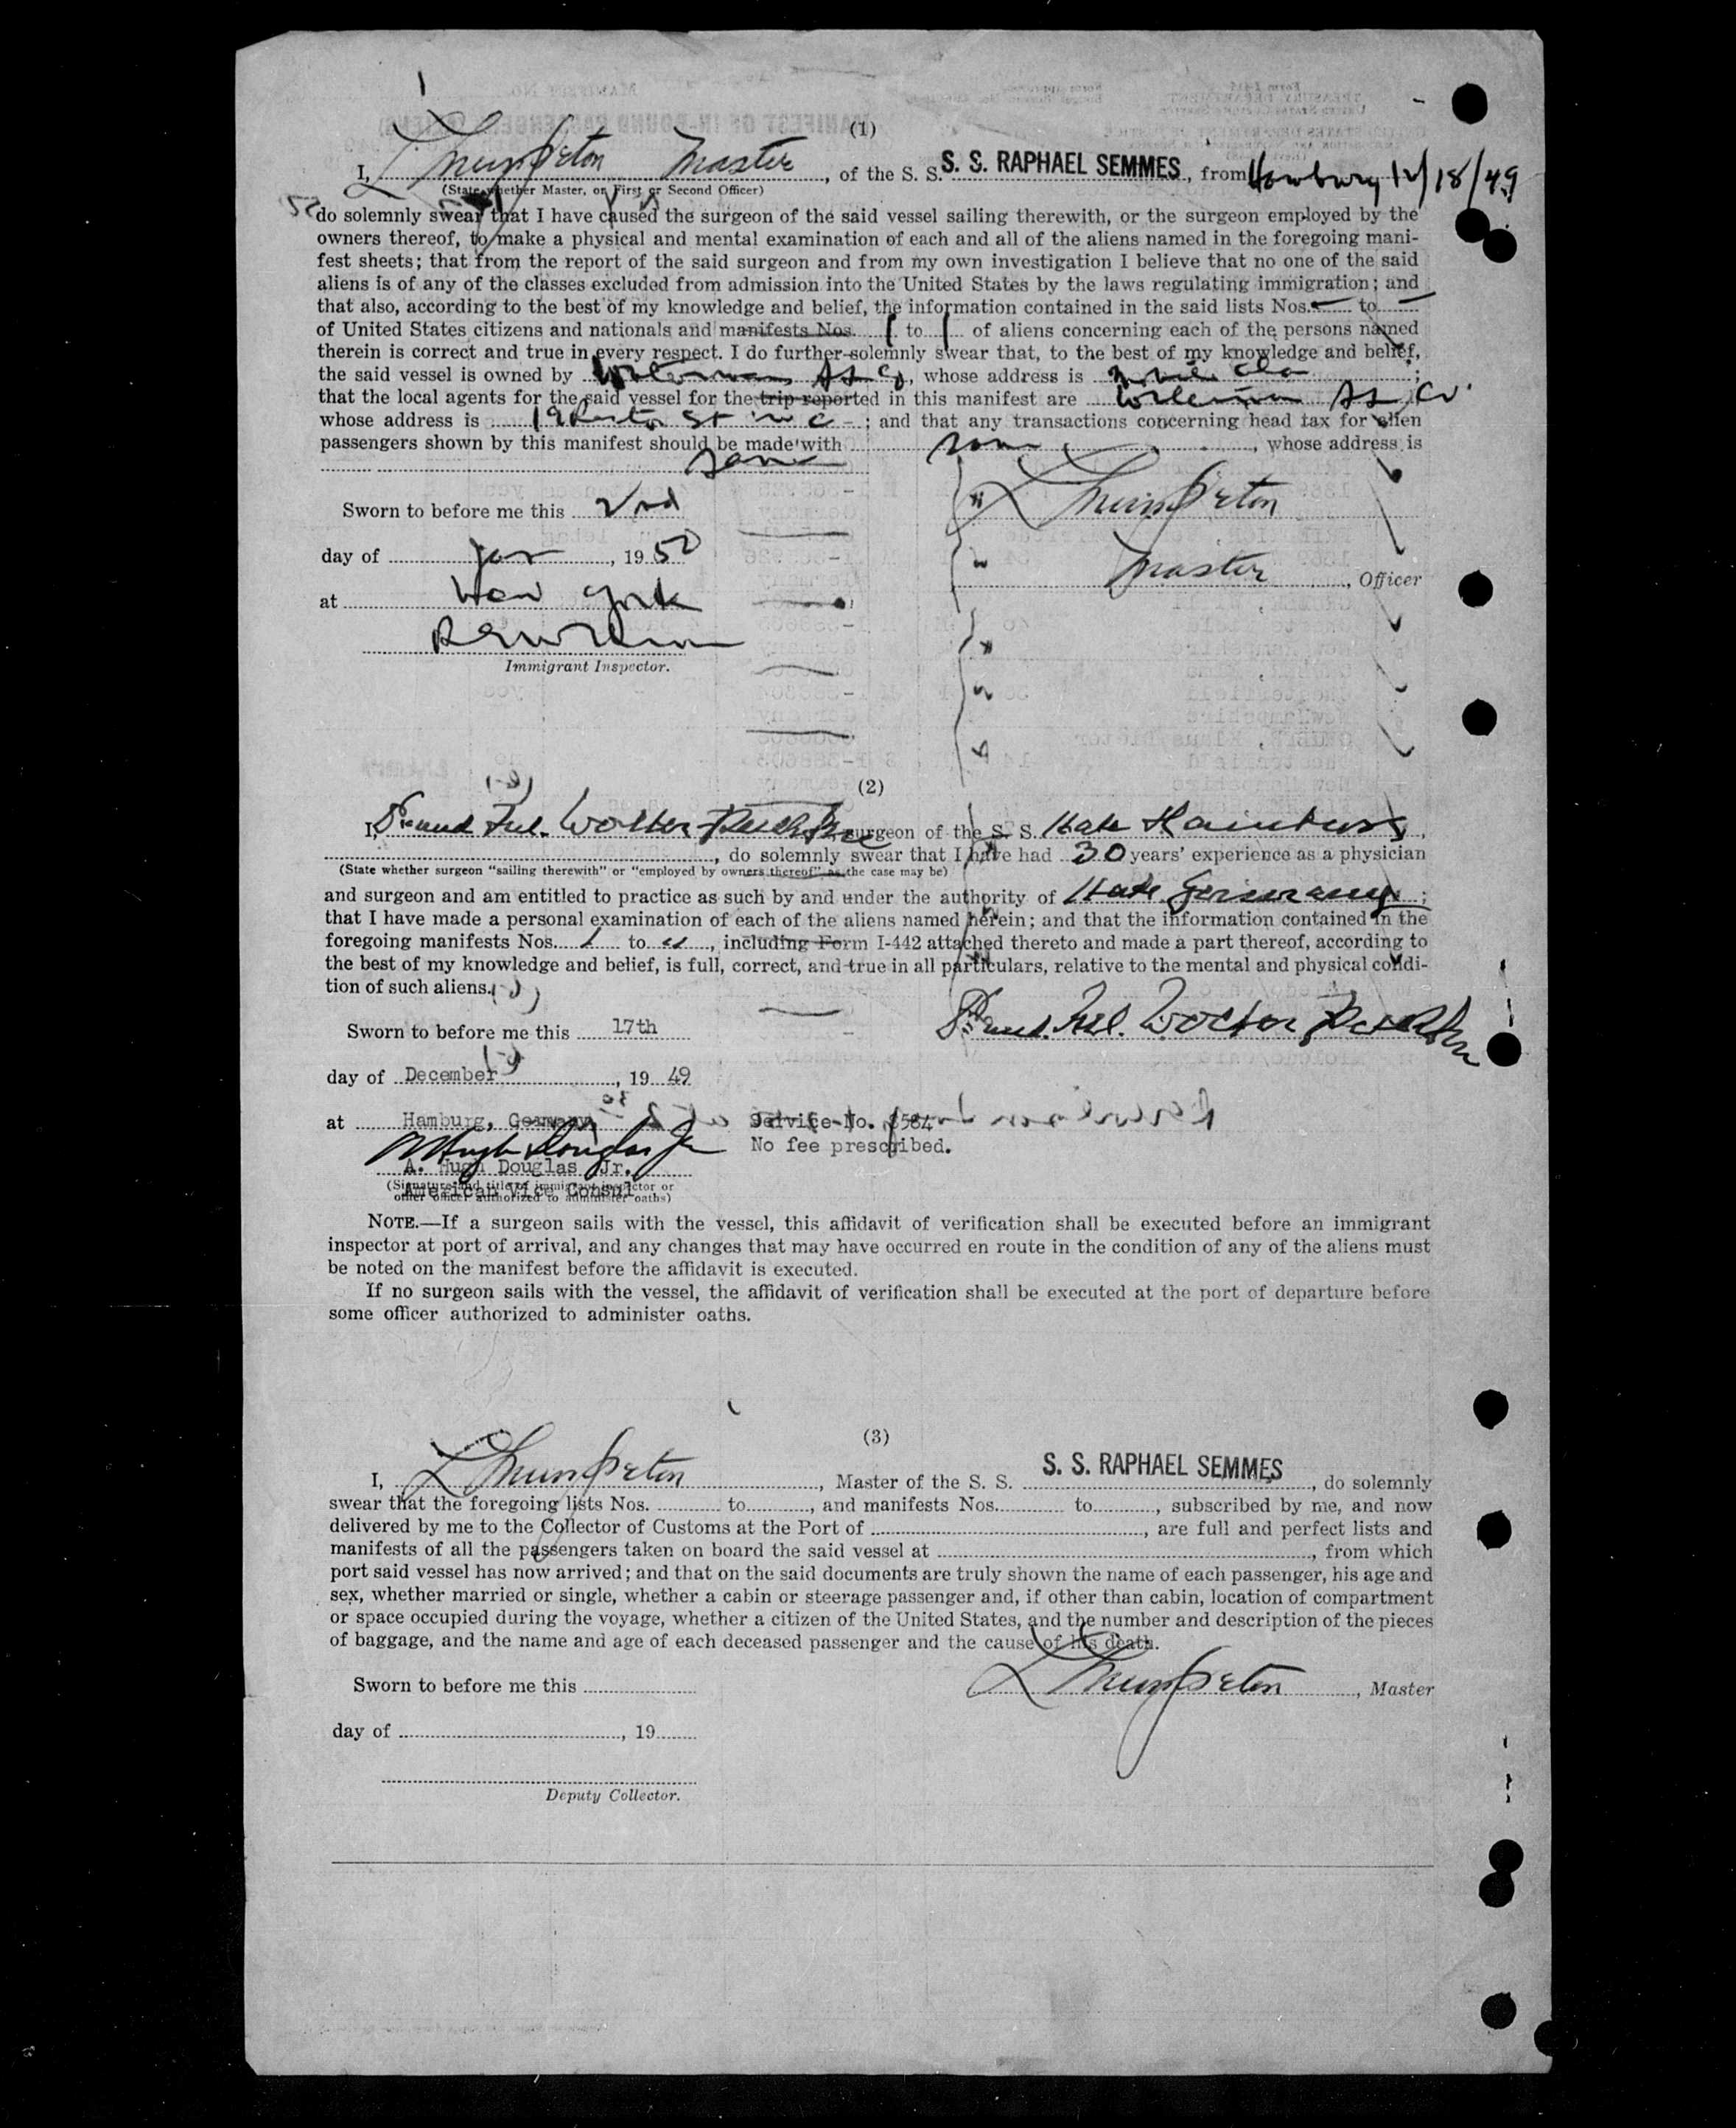 (1)
I, Master, of the S. S. S. S. RAPHAEL SEMMES, from Hamburg 12/18/49
(State whether Master, or First or Second Officer)
do solemnly swear that I have caused the surgeon of the said vessel sailing therewith, or the surgeon employed by the
owners thereof, to make a physical and mental examination of each and all of the aliens named in the foregoing mani-
fest sheets; that from the report of the said surgeon and from my own investigation I believe that no one of the said
aliens is of any of the classes excluded from admission into the United States by the laws regulating immigration; and
that also, according to the best of my knowledge and belief, the information contained in the said lists Nos. — to —
of United States citizens and nationals and manifests Nos. 1 to 1 of aliens concerning each of the persons named
therein is correct and true in every respect. I do further solemnly swear that, to the best of my knowledge and belief,
the said vessel is owned by Waterman SS Co, whose address is Mobile Ala ;
that the local agents for the said vessel for the trip reported in this manifest are Waterman SS Co
whose address is 19 St N Y C ; and that any transactions concerning head tax for alien
passengers shown by this manifest should be made with same, whose address is
same
Sworn to before me this 2nd
day of Jan, 19 50
Master, Officer
at New York
Immigrant Inspector.
(2)
I, Dr. med. Walter surgeon of the S. S.
, do solemnly swear that I have had 30 years' experience as a physician
(State whether surgeon "sailing therewith" or "employed by owners thereof" as the case may be)
and surgeon and am entitled to practice as such by and under the authority of State Germany ;
that I have made a personal examination of each of the aliens named herein; and that the information contained in the
foregoing manifests Nos. 1 to , including Form I-442 attached thereto and made a part thereof, according to
the best of my knowledge and belief, is full, correct, and true in all particulars, relative to the mental and physical condi-
tion of such aliens.
Sworn to before me this 17th
Dr. med. Walter
day of December, 19 49
at Hamburg, Germany Service No. 8584
No fee prescribed.
A. Hugh Douglas Jr.
A. Hugh Douglas Jr.
American Vice Consul
(Signature and title of immigrant inspector or
other officer authorized to administer oaths)
NOTE.—If a surgeon sails with the vessel, this affidavit of verification shall be executed before an immigrant
inspector at port of arrival, and any changes that may have occurred en route in the condition of any of the aliens must
be noted on the manifest before the affidavit is executed.
If no surgeon sails with the vessel, the affidavit of verification shall be executed at the port of departure before
some officer authorized to administer oaths.
(3)
I, , Master of the S. S. S. S. RAPHAEL SEMMES, do solemnly
swear that the foregoing lists Nos. to , and manifests Nos. to , subscribed by me, and now
delivered by me to the Collector of Customs at the Port of , are full and perfect lists and
manifests of all the passengers taken on board the said vessel at , from which
port said vessel has now arrived; and that on the said documents are truly shown the name of each passenger, his age and
sex, whether married or single, whether a cabin or steerage passenger and, if other than cabin, location of compartment
or space occupied during the voyage, whether a citizen of the United States, and the number and description of the pieces
of baggage, and the name and age of each deceased passenger and the cause of his death.
Sworn to before me this
, Master
day of , 19
Deputy Collector.